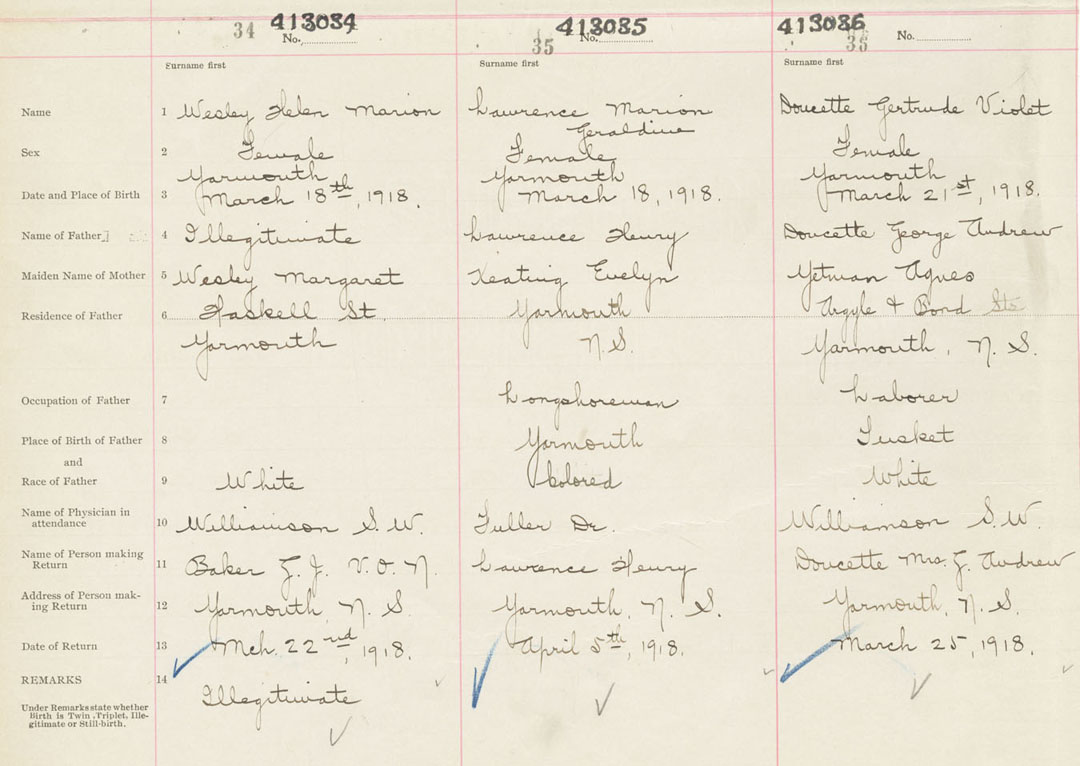 34 413084 No.
35 413085 No.
413086 36 No.
Surname first Surname first Surname first
Name 1 Wesley Helen Marion Lawrence Marion Doucette Gertrude Violet
Geraldine
Sex 2 Female Female Female
Yarmouth Yarmouth Yarmouth
Date and Place of Birth 3 March 18th, 1918. March 18, 1918. March 21st, 1918.
Name of Father 4 Illegitimate Lawrence Henry Doucette George Andrew
Maiden Name of Mother 5 Wesley Margaret Keating Evelyn Yetman Agnes
Residence of Father 6 Haskell St. Yarmouth Argyle & Bond Sts
Yarmouth N.S. Yarmouth, N.S.
Occupation of Father 7 Longshoreman Laborer
Place of Birth of Father 8 Yarmouth Tusket
and
Race of Father 9 White Colored White
Name of Physician in attendance 10 Williamson S.W. Fuller Dr. Williamson S.W.
Name of Person making Return 11 Baker V.O.N. Lawrence Henry Doucette Mrs. G. Andrew
Address of Person mak-ing Return 12 Yarmouth, N.S. Yarmouth, N.S. Yarmouth, N.S.
Date of Return 13 Mch. 22nd, 1918. April 5th, 1918. March 25, 1918.
REMARKS 14 Illegitimate
Under Remarks state whether
Birth is Twin, Triplet, Ille-
gitimate or Still-birth.